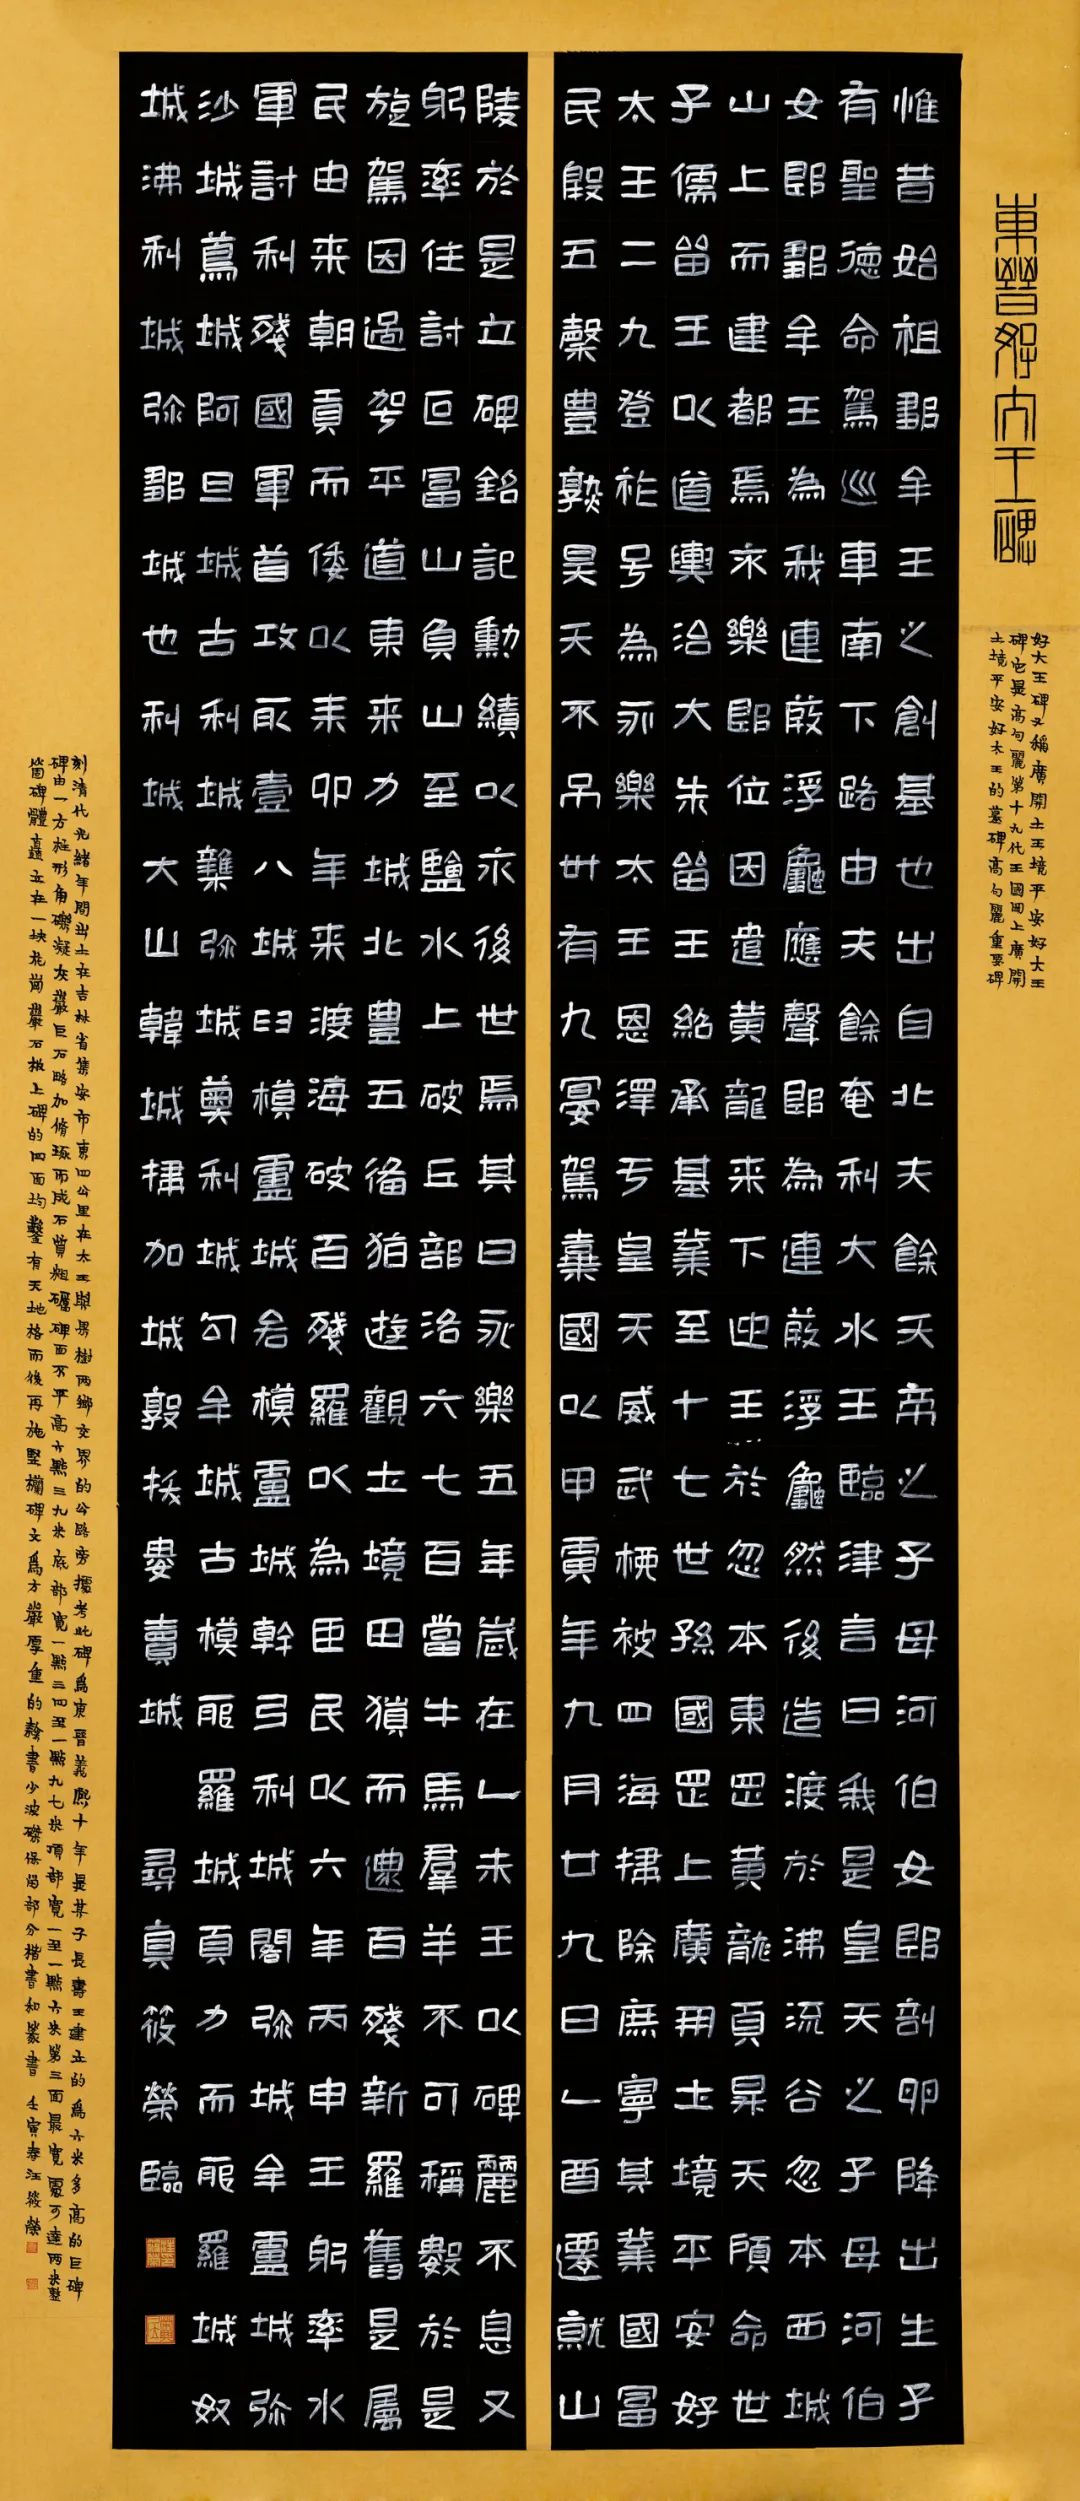 東晉好大王碑
好大王碑又稱廣開土王境平安好大王
碑它是高句麗第十九代王國罡上廣開
土境平安好太王的墓碑高句麗重要碑
惟昔始祖鄒牟王之創基也出自北夫餘天帝之子母河伯女郎剖卵降出生子
有聖德命駕巡車南下路由夫餘奄利大水王臨津言曰我是皇天之子母河伯
女郎鄒牟王為我連葭浮龜應聲即為連葭浮龜然後造渡於沸流谷忽本西城
山上而建都焉永樂即位因遣黃龍来下迎王於忽本東罡黃龍頁昇天顧命世
子儒留王以道輿治大朱留王紹承基業至十七世孫國罡上廣開土境平安好
太王二九登祚号為永樂太王恩澤于皇天威武被四海掃除庶寧其業國富
民殷五穀豐熟昊天不吊卅有九晏駕棄國以甲寅年九月廿九日乙酉遷就山
陵於是立碑銘記勳績以永後世焉其曰永樂五年歲在乙未王以碑麗不息又
躬率住討叵富山負山至鹽水上破丘部洛六七百當牛馬羣羊不可稱數於是
旋駕因過平道東来力城北豐五備遊觀土境田獵而還百殘新羅舊是屬
民由来朝貢而倭以耒卯年来渡海破百殘羅以為臣民以六年丙申王躬率水
軍討利殘國軍首攻取壹八城臼模盧城各模盧城幹弓利城閣弥城牟盧城弥
沙城蔦城阿旦城古利城雜弥城奧利城句牟城古模耶羅城頁力而耶羅城奴
城沸利城弥鄒城也利城大山韓城掃加城敦拔婁賣城 尋真筱榮臨
刻清代光緒年間出土在吉林省集安市東四公里在太王與男樹兩鄉交界的公路旁據考此碑爲東晉義熙十年是其子長壽王建立的爲六米多高的巨碑
碑由一方柱形角礫凝灰巖巨石略加脩琢而成石質粗礪碑面不平高六點三九米底部寬一點三四至一點九七米頂部寬一至一點六米第三面最寬處可達兩米整
箇碑體矗立在一塊花崗巖石板上碑的四面均鑿有天地格而後再施竪欄碑文爲方嚴厚重的隸書少波磔保留部分楷書和篆書 壬寅春汪筱榮